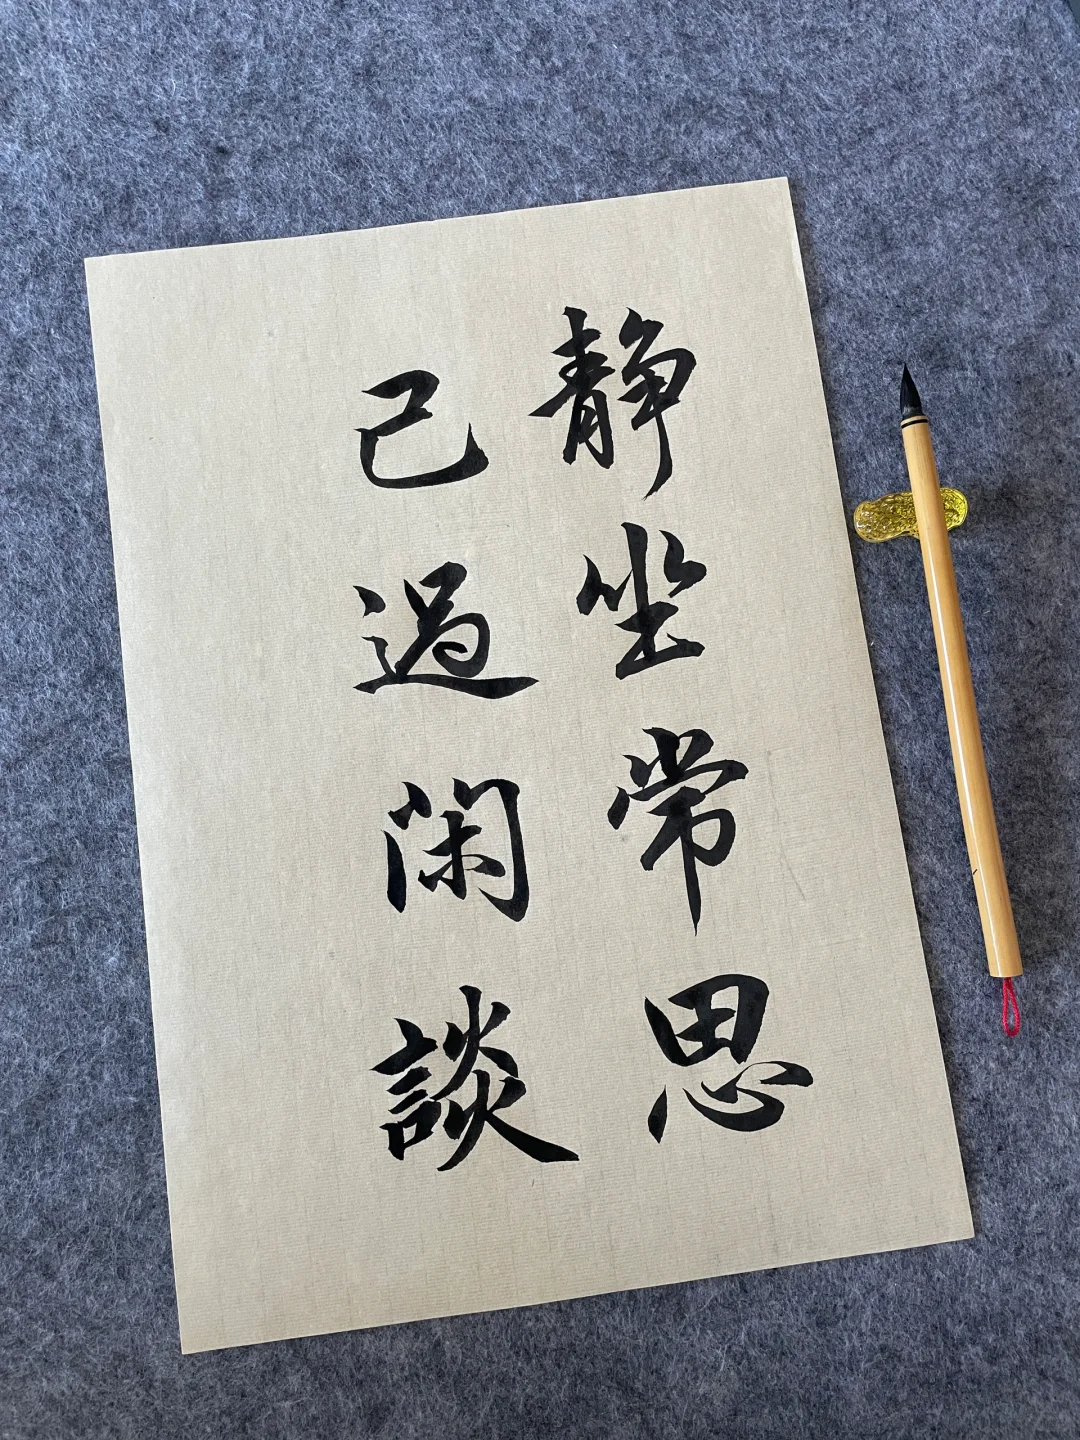 静坐常思
己過闲談